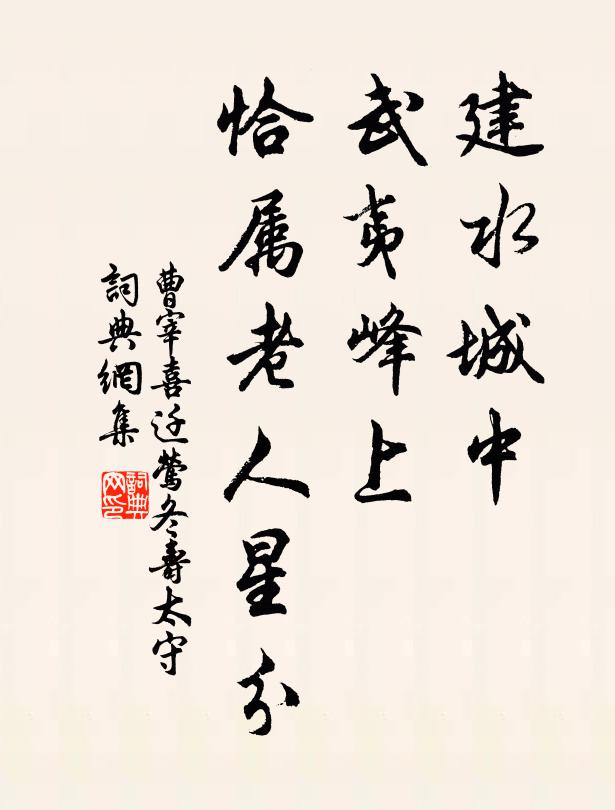 建水城中
武夷峰上
恰属老人星分
曹宰喜迁莺冬壽太守
詞典網集
詞典网印